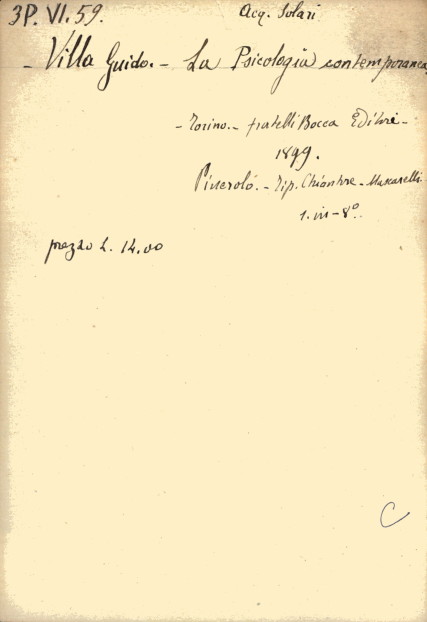 3P. VI. 59. Acq. Solari
- Villa Guido. - La Psicologia contemporanea,
- Torino. - fratelli Bocca Editori -
1899.
Pinerolo. - Tip. Chiantore - Mascarelli
1. in - 8º.
prezzo L. 14.00
C